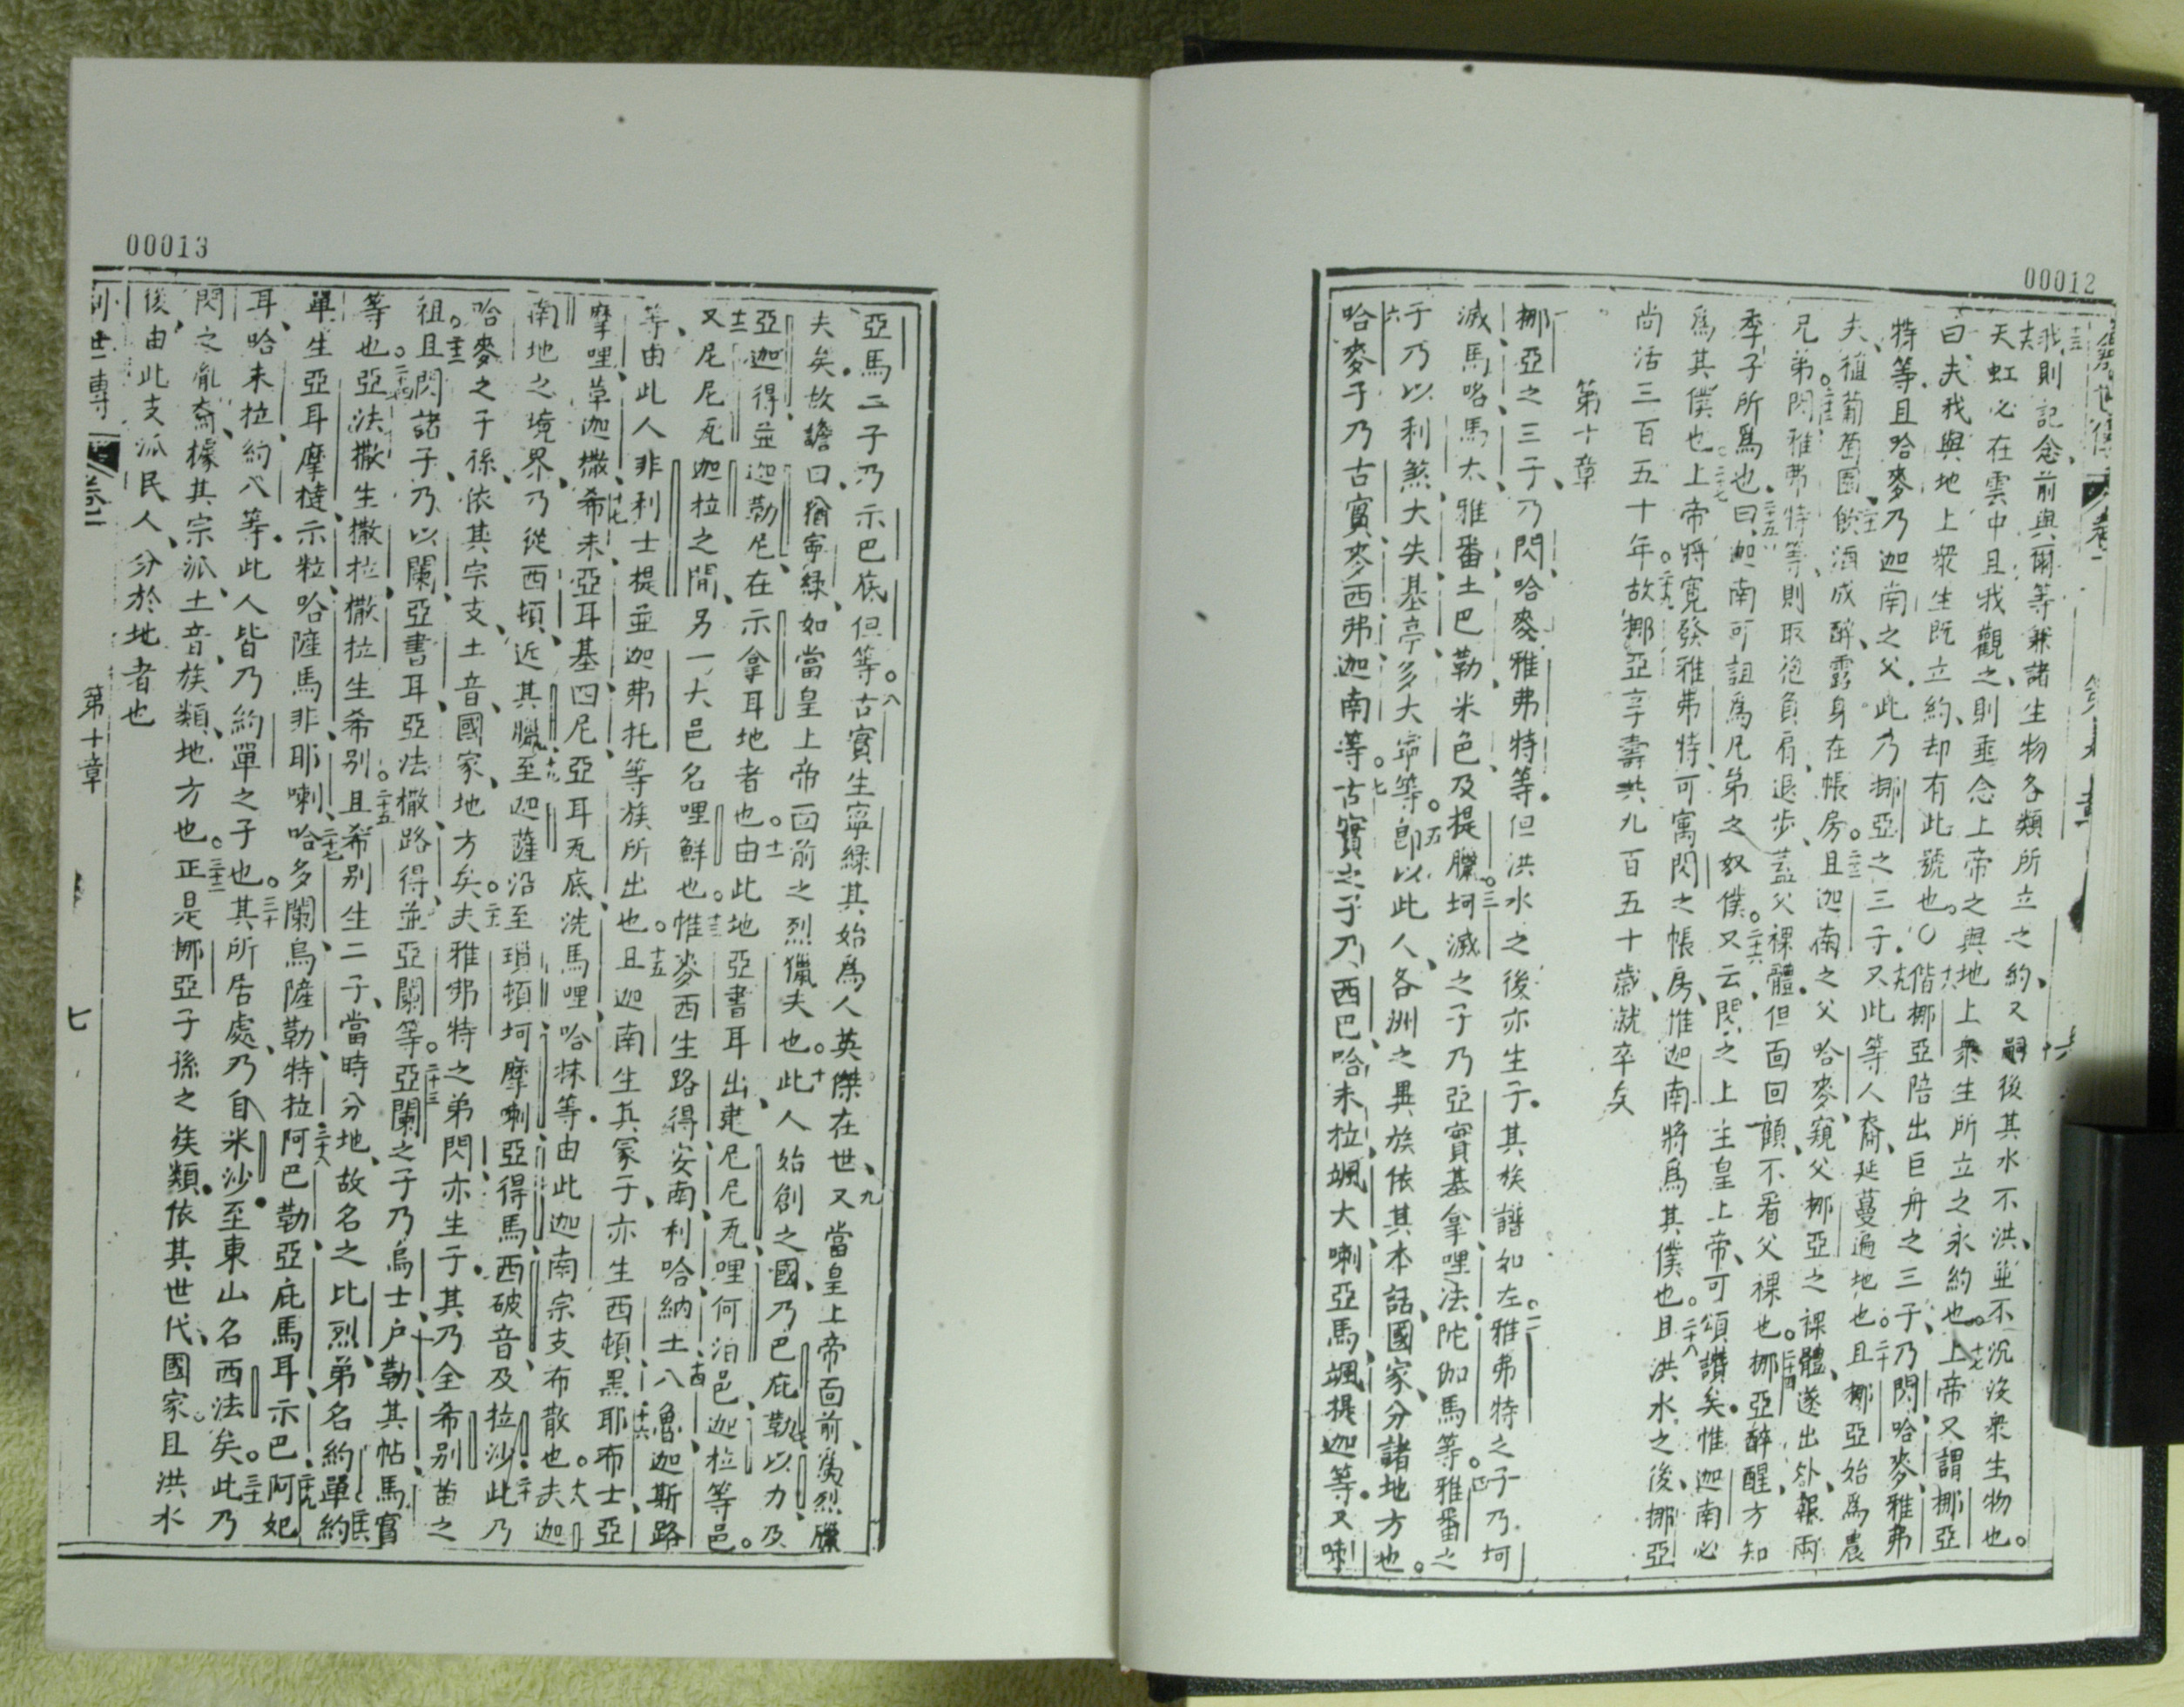 00012
我則記念前與爾等兼諸生物各類所立之約又嗣後其水不洪並不沉沒衆生物也。
天虹必在雲中且我觀之則垂念上帝之與地上衆生所立之永約也。上帝又謂挪亞
曰夫我與地上衆生既立約却有此號也。〇偕挪亞陪出巨舟之三子乃閃哈麥雅弗
特等且哈麥乃迦南之父此乃挪亞之三子又此等人裔延蔓遍地也。且挪亞始爲農
夫植葡萄園飲酒成醉露身在帳房。且迦南之父哈麥窺父挪亞之裸體遂出外報兩
兄弟閃雅弗特等則取袍負肩退步蓋父裸體但面回顧不看父裸也。挪亞醉醒方知
季子所爲也曰迦南可詛爲兄弟之奴僕。又云閃之上主皇上帝可頌讚矣惟迦南必
爲其僕也。上帝將寬發雅弗特可寓閃之帳房惟迦南將爲其僕也。且洪水之後挪亞
尚活三百五十年。故挪亞享壽共九百五十歲就卒矣
第十章
挪亞之三子乃閃哈麥雅弗特等但洪水之後亦生子其族譜如左。雅弗特之子乃坷
滅馬咯馬太雅番土巴勒米色及提臘。坷滅之子乃亞實基拿哩法陀伽馬等。雅番之
子乃以利煞大失基亭多大寧等。即以此人各洲之異族依其本話國家分諸地方也。
哈麥子乃古實麥西弗迦南等。古實之子乃西巴哈未拉颯大喇亞馬颯提迦等又喇
00013
亞馬二子乃示巴底但等。古實生寧綠其始爲人英傑在世又當皇上帝面前爲烈獵
夫矣故諺曰猶寧綠如當皇上帝面前之烈獵夫也。此人始創之國乃巴庇勒以力及
亞迦得並迦勒尼在示拿耳地者也。由此地亞書耳出建尼尼瓦哩何泊邑迦拉等邑。
又尼尼瓦迦拉之間另一大邑名哩鮮也。惟麥西生路得安南利哈納土八魯迦斯路
等由此人非利士提並迦弗托等族所出也。且迦南生其冢子亦生西頓黑耶布士亞
摩哩革迦撒希未亞耳基四尼亞耳瓦底洗馬哩哈抹等由此迦南宗支布散也。夫迦
南地之境界乃從西頓近其臘至迦薩沿至瑣頓坷摩喇亞得馬西破音及拉沙此乃
哈麥之子孫依其宗支土音國家地方矣。夫雅弗特之弟閃亦生子其乃全希别苗之
祖。且閃諸子乃以闌亞書耳亞法撒路得並亞闌等。亞闌之子乃烏士户勒其帖馬實
等也。亞法撒生撒拉撒拉生希别。且希别生二子當時分地故名之比烈弟名約單約
單生亞耳摩撻示粒哈薩馬非耶喇哈多闌烏薩勒特拉阿巴勒亞庇馬耳示巴阿妃
耳哈未拉約八等此人皆乃約單之子也。其所居處乃自米沙至東山名西法矣。此乃
閃之胤裔據其宗派土音族類地方也。正是挪亞子孫之族類依其世代國家。且洪水
後由此支派民人分於地者也
卷一
第十章
七